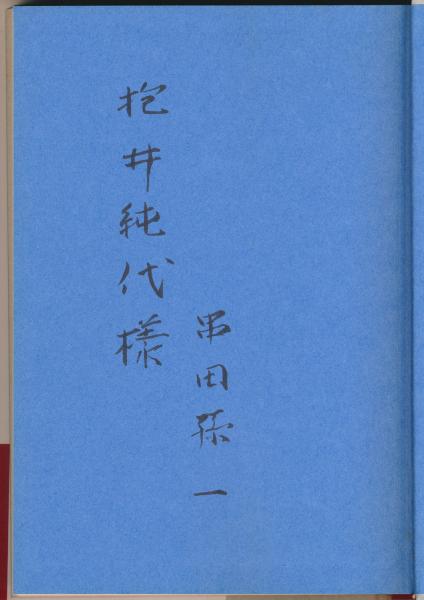 串田孫一
抱井純代様